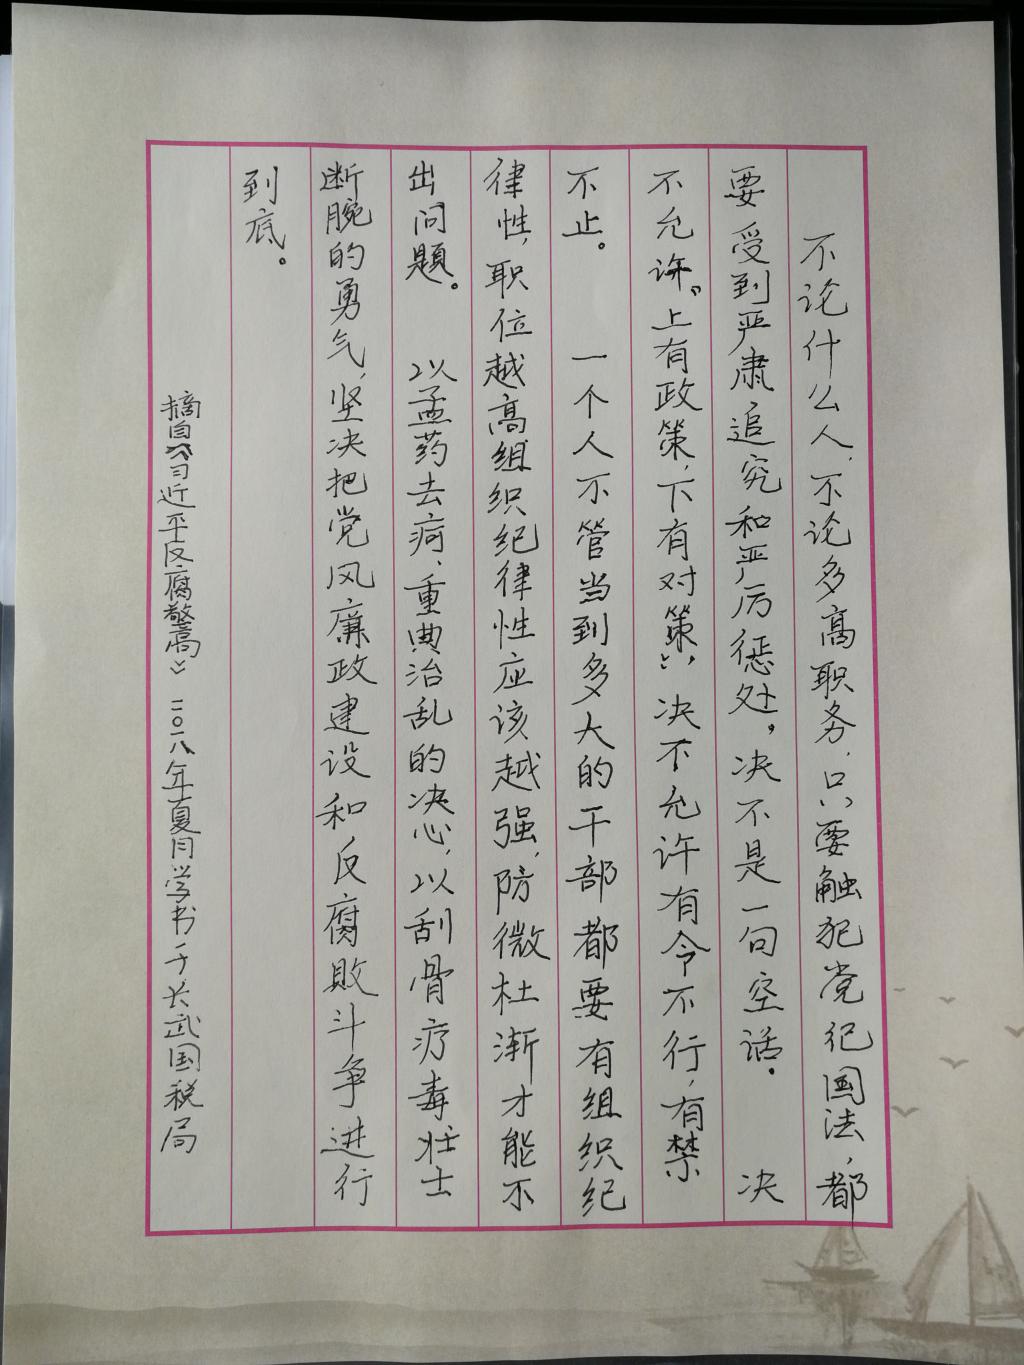 不论什么人，不论多高职务，只要触犯党纪国法，都
要受到严肃追究和严厉惩处，决不是一句空话。　决
不允许“上有政策、下有对策”，决不允许有令不行，有禁
不止。　一个人不管当到多大的干部都要有组织纪
律性，职位越高组织纪律性应该越强，防微杜渐才能不
出问题。　以孟药去疴、重典治乱的决心，以刮骨疗毒壮士
断腕的勇气，坚决把党风廉政建设和反腐败斗争进行
到底。
摘自《习近平反腐警高》二〇一八年夏月学书于长武国税局